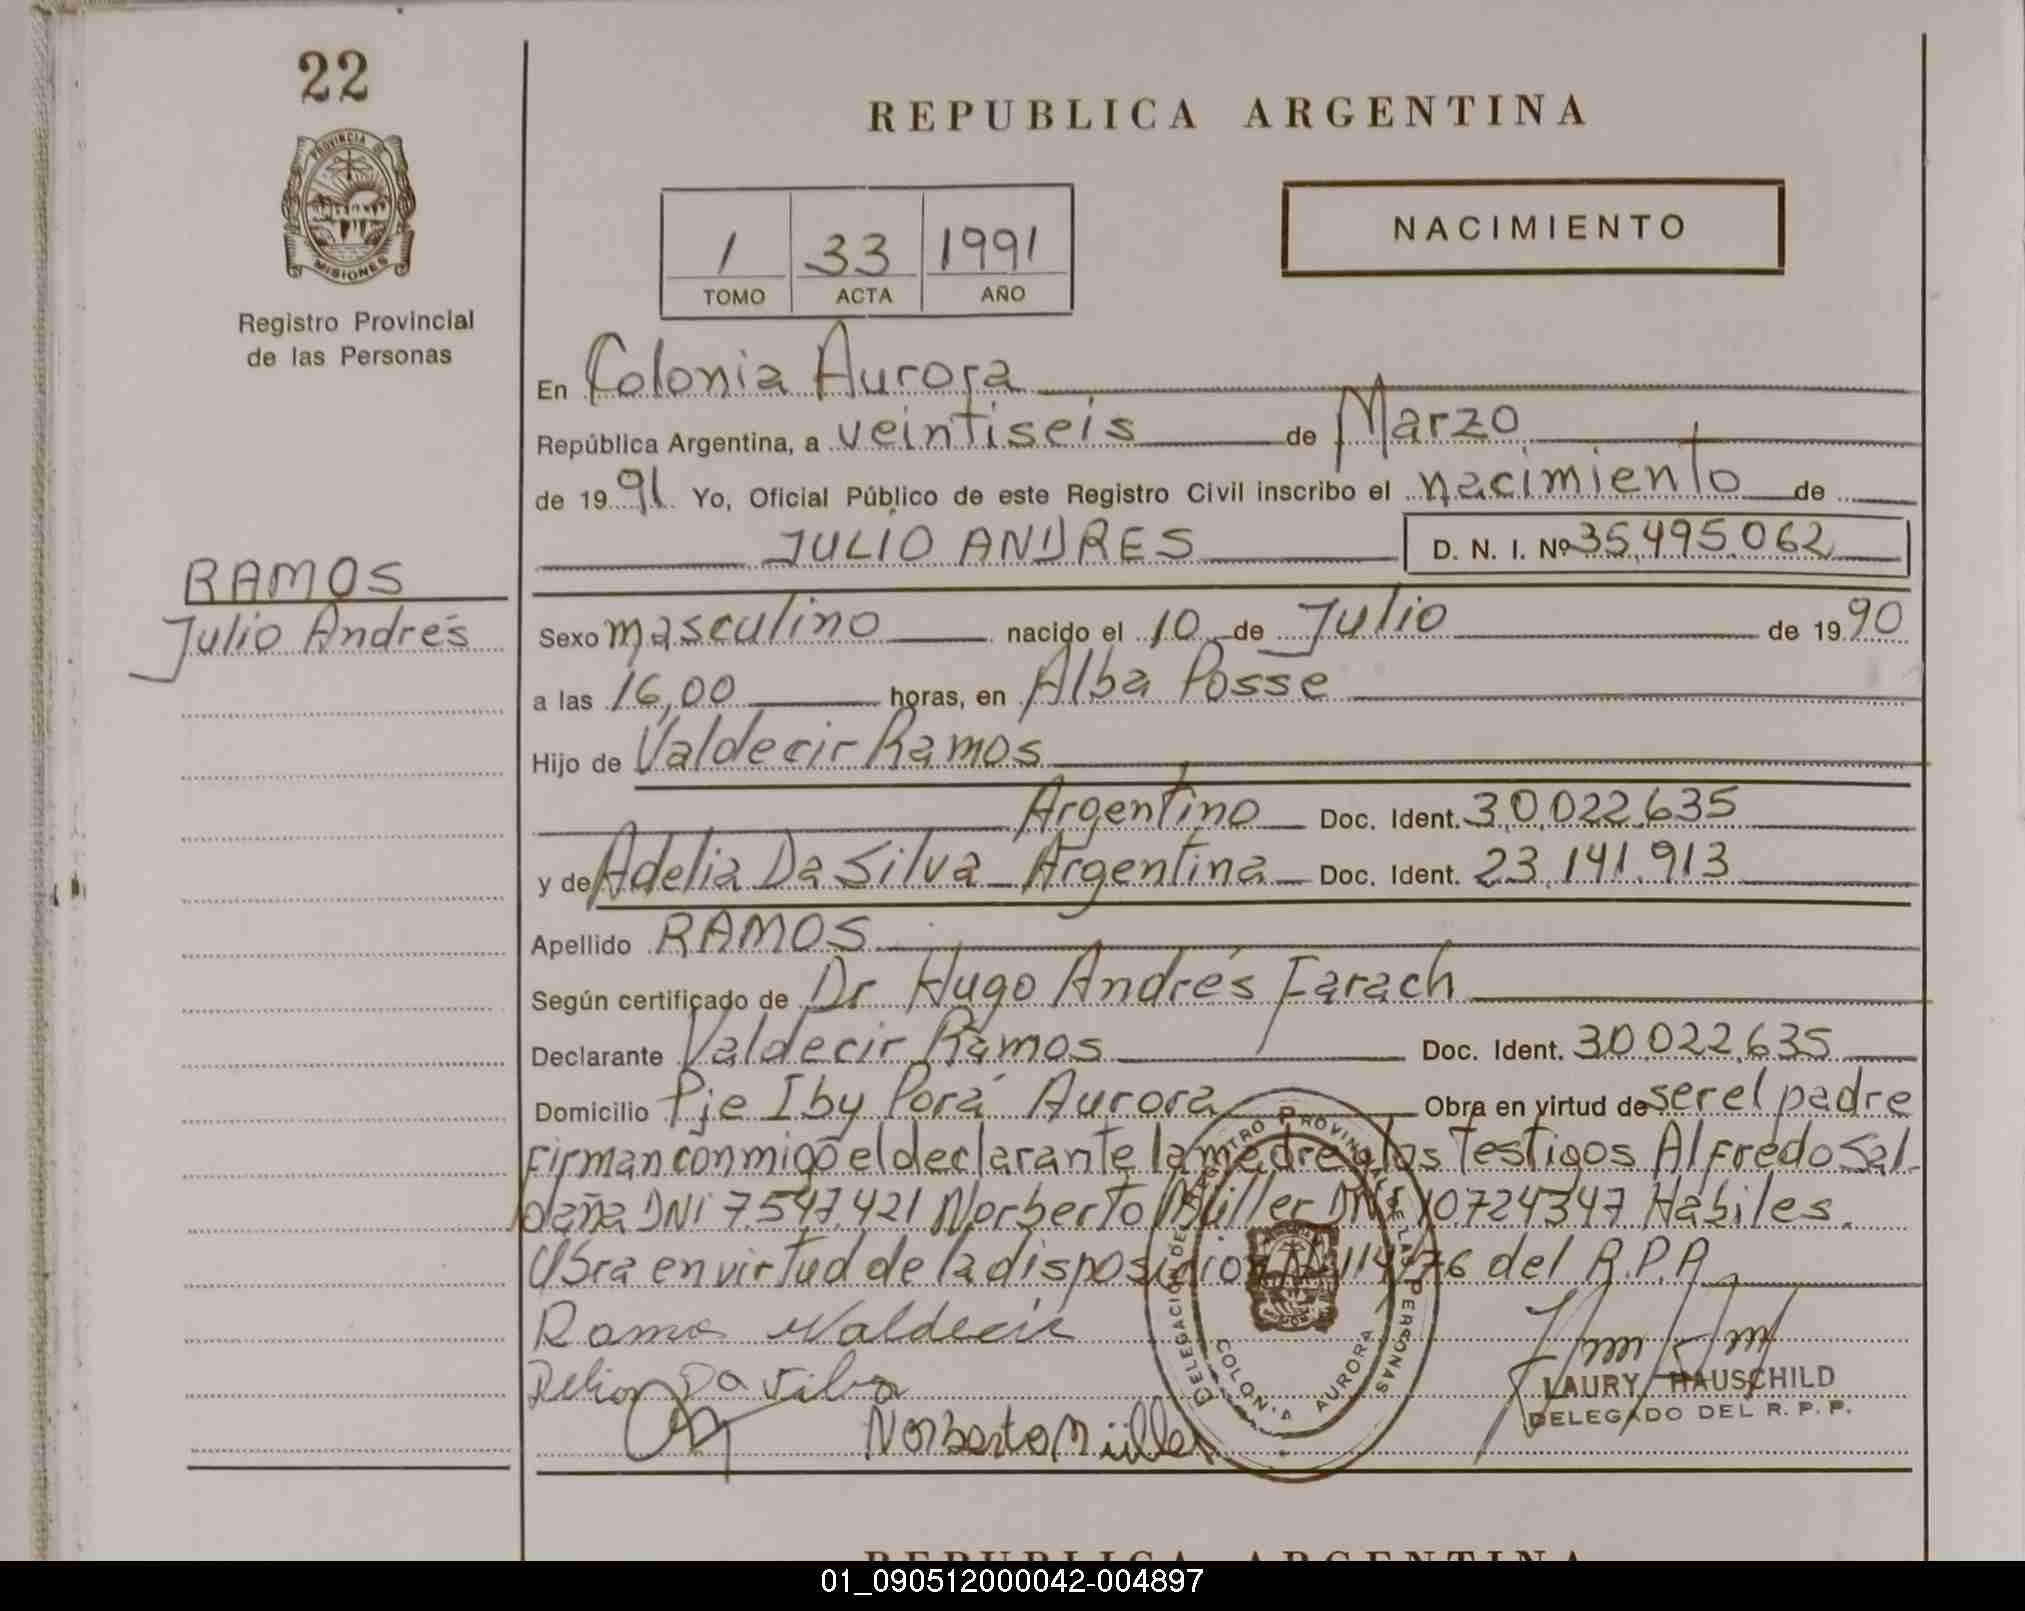 22
PROVINCIA DE
MISIONES
Registro Provincial
de las Personas
RAMOS
Julio Andrés
REPUBLICA ARGENTINA
NACIMIENTO
1 33 1991
TOMO ACTA AÑO
En Colonia Aurora
República Argentina, a veintiseis de Marzo
de 19 91 Yo, Oficial Público de este Registro Civil inscribo el nacimiento de
JULIO ANDRES D. N. I. Nº 35.495.062
Sexo masculino nacido el 10 de Julio de 19 90
a las 16,00 horas, en Alba Posse
Hijo de Valdecir Ramos
Argentino Doc. Ident. 30.022.635
y de Adelia Da Silva Argentina Doc. Ident. 23.141.913
Apellido RAMOS
Según certificado de Dr Hugo Andrés Farach
Declarante Valdecir Ramos Doc. Ident. 30.022.635
Domicilio Pje Iby Porá Aurora Obra en virtud de ser el padre
Firman conmigo el declarante la madre y los testigos Alfredo Sal-
daña DNI 7.547.421 Norberto Müller DNI 10724347 Hábiles.
Obra en virtud de la disposición 114/76 del R.P.P.
Ramos Valdecir
Da Silva
Norberto Müller
DELEGACION DEL REGISTRO PROVINCIAL DE LAS PERSONAS
COLONIA AURORA
LAURY HAUSCHILD
DELEGADO DEL R. P. P.
REPUBLICA ARGENTINA
01_090512000042-004897